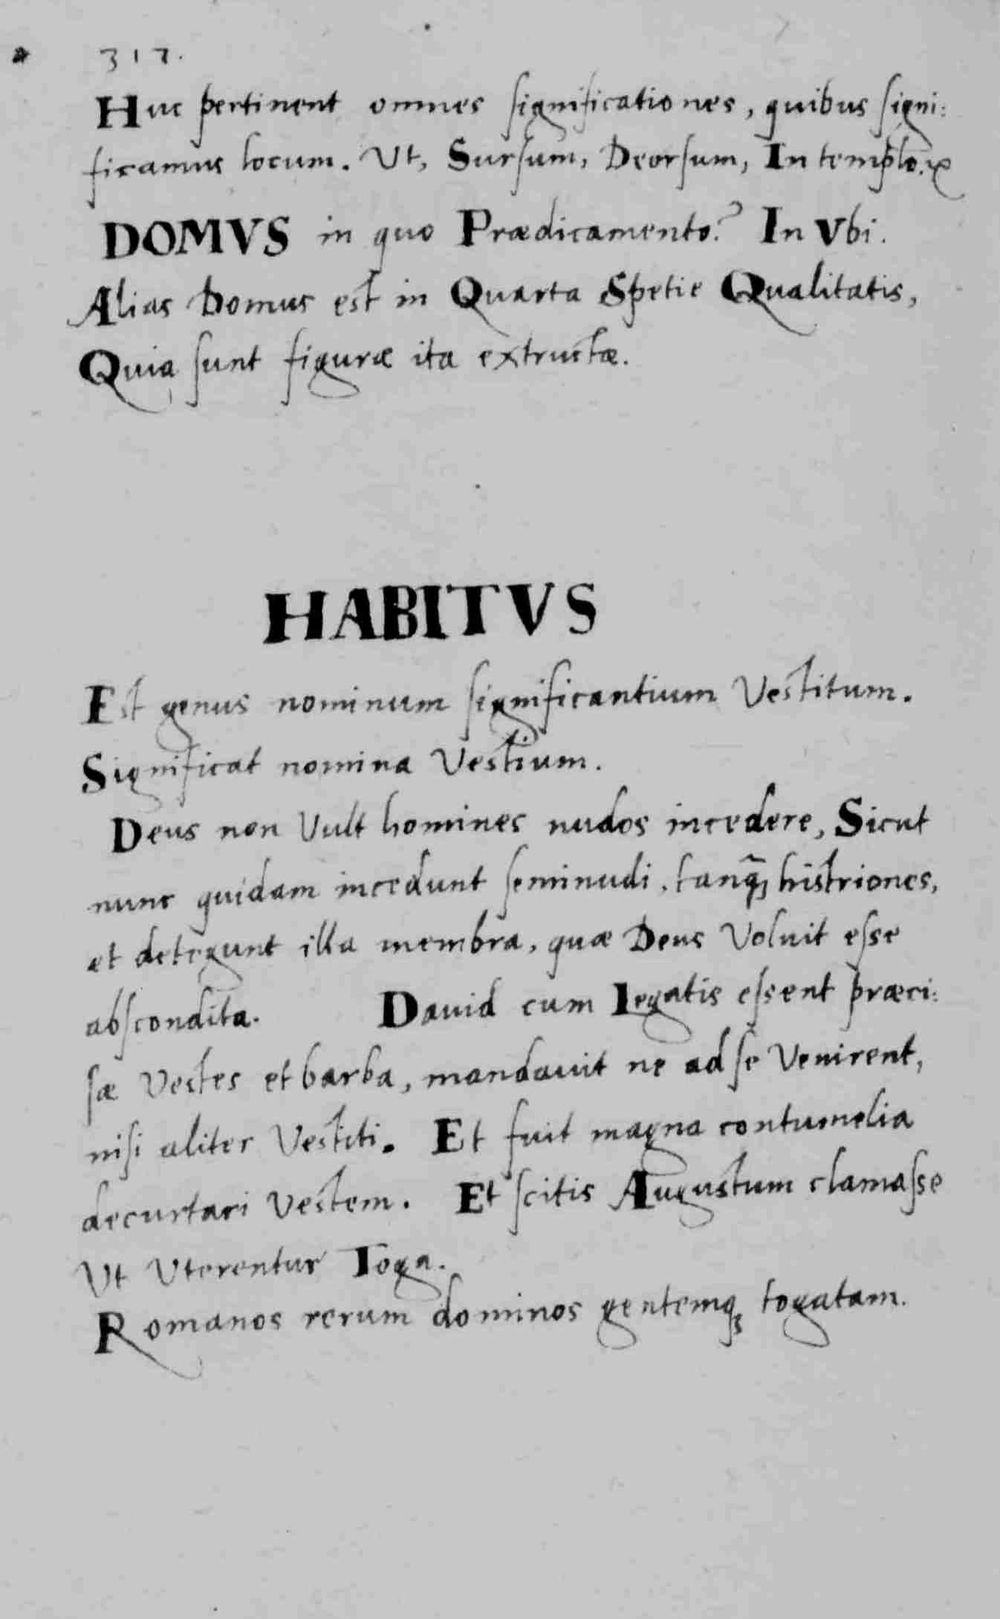 317.
Huc pertinent omnes significationes, quibus signi:
ficamus locum. Ut, Sursum, Deorsum, In templo.
DOMVS in quo Prædicamento? In Vbi.
Alias Domus est in Quarta Spetie Qualitatis,
Quia sunt figuræ ita extructæ.
HABITVS
Est genus nominum significantium Vestitum.
Significat nomina Vestium.
Deus non Vult homines nudos incedere, Sicut
nunc quidam incedunt seminudi, tanq̃ histriones,
et detegunt illa membra, quæ Deus Voluit esse
abscondita. Dauid cum legatis essent præci:
sæ Vestes et barba, mandauit ne ad se Venirent,
nisi aliter Vestiti. Et fuit magna contumelia
decurtari Vestem. Et scitis Augustum clamasse
Ut Uterentur Toga.
Romanos rerum dominos gentemqꝫ togatam.